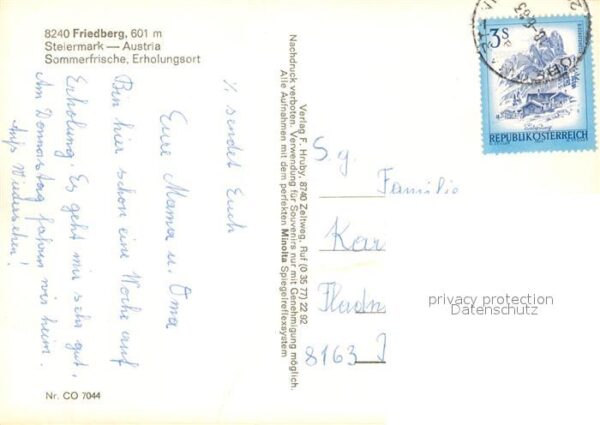 8240 Friedberg, 601 m
Steiermark — Austria
Sommerfrische, Erholungsort
Bin hier schon eine Woche auf
Erholung. Es geht mir sehr gut,
Am Donnerstag fahren wir heim.
Auf Wiedersehen!
Eure Mama u. Oma
½ sendet Euch
Nr. CO 7044
Verlag F. Hruby, 8740 Zeltweg, Ruf (0 35 77) 22 92
Nachdruck verboten. Verwendung für Souvenirs nur mit Genehmigung möglich.
Alle Aufnahmen mit dem perfekten Minolta Spiegelreflexsystem
3s
REPUBLIK ÖSTERREICH
S.g.
Familie
Kar
Fladn
8163
privacy protection
Datenschutz